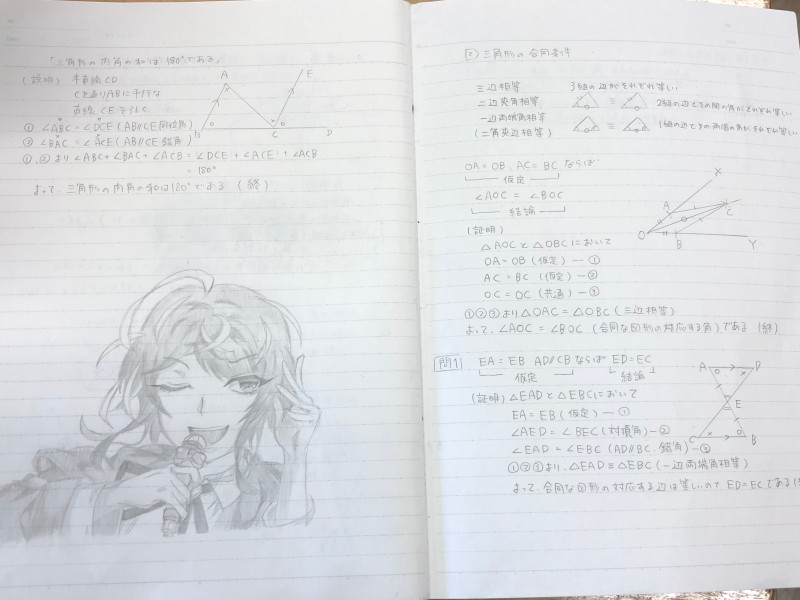 「三角形の内角の和は180°である」
(説明) 半直線CD
Cを通りABに平行な
直線CEをひく
① ∠ABC = ∠DCE (AB//CE 同位角)
② ∠BAC = ∠ACE (AB//CE 錯角)
①,②より ∠ABC + ∠BAC + ∠ACB = ∠DCE + ∠ACE + ∠ACB
= 180°
よって、三角形の内角の和は180°である (終)
A
E
B
C
D
三角形の合同条件
三辺相等 3組の辺がそれぞれ等しい
二辺夾角相等 2組の辺とその間の角がそれぞれ等しい
一辺両端角相等 1組の辺とその両端の角がそれぞれ等しい
(二角夾辺相等)
OA = OB, AC = BC ならば
仮定
∠AOC = ∠BOC
結論
(証明)
△AOCと△OBCにおいて
OA = OB (仮定) ー①
AC = BC (仮定) ー②
OC = OC (共通) ー③
①②③より △OAC = △OBC (三辺相等)
よって、∠AOC = ∠BOC (合同な図形の対応する角) である (終)
X
A
C
O
B
Y
問1 EA = EB AD//CB ならば ED = EC
仮定 結論
(証明) △EADと△EBCにおいて
EA = EB (仮定) ー①
∠AED = ∠BEC (対頂角) ー②
∠EAD = ∠EBC (AD//BC 錯角) ー③
①②③より、△EAD ≡ △EBC (一辺両端角相等)
よって、合同な図形の対応する辺は等しいので ED = ECである
A
D
E
C
B